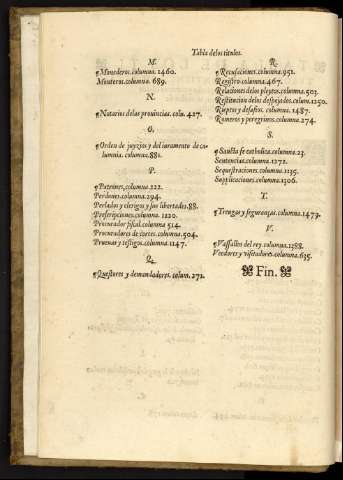 Tabla delos titulos.
M.
¶Monederos.columna. 1460.
Monteros.columna. 689.
N.
¶Notarios delas prouincias. colu. 427.
O.
¶Orden de juyzios y del iuramento de ca-
lumnia. columna.881.
P.
¶Patrones.columna.222.
Perdones.columna.294.
Perlados y clerigos y sus libertades.88.
Prescripciones.columna. 1220.
Procurador fiscal.columna 514.
Procuradores de cortes.columna.504.
Prueuas y testigos.columna.1147.
Q.
¶Questores y demandadores. colum. 271.
R.
¶Recusaciones.columna.951.
Registro.columna.467.
Relaciones delos pleytos.columna.503.
Restitucion delos despojados.colum.1250.
Rieptos y desafios. columna.1487.
Romeros y peregrinos.columna.274.
S.
¶Sancta fe catholica.columna.23.
Sentencias.columna.1272.
Sequestraciones.columna.1135.
Supplicaciones.columna.1306.
T.
¶Treguas y seguranças.columna.1479.
V.
¶Vassallos del rey.columna.1288.
Veedores y visitadores.columna.635.
Fin.